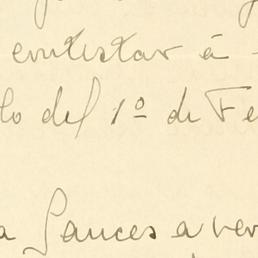 contestar á
lo del 1º de Fe
a Garces a ver